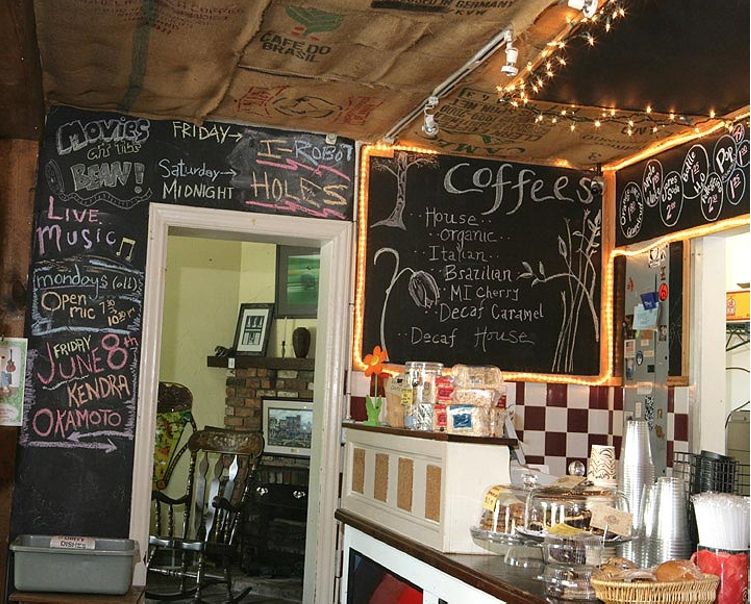 CAFE DO
BRASIL
IN GERMANY
KVW
MOVIES
AT THE
BEAN!
FRIDAY→
I-ROBOT
Saturday→
MIDNIGHT
HOLES
LIVE
MUSIC
mondays (all)
OPEN
mic 7:30
10:30
FRIDAY
JUNE 8th
KENDRA
OKAMOTO
Coffees
House
organic
Italian
Brazilian
MI Cherry
Decaf Caramel
Decaf House
DIRTY
DISHES